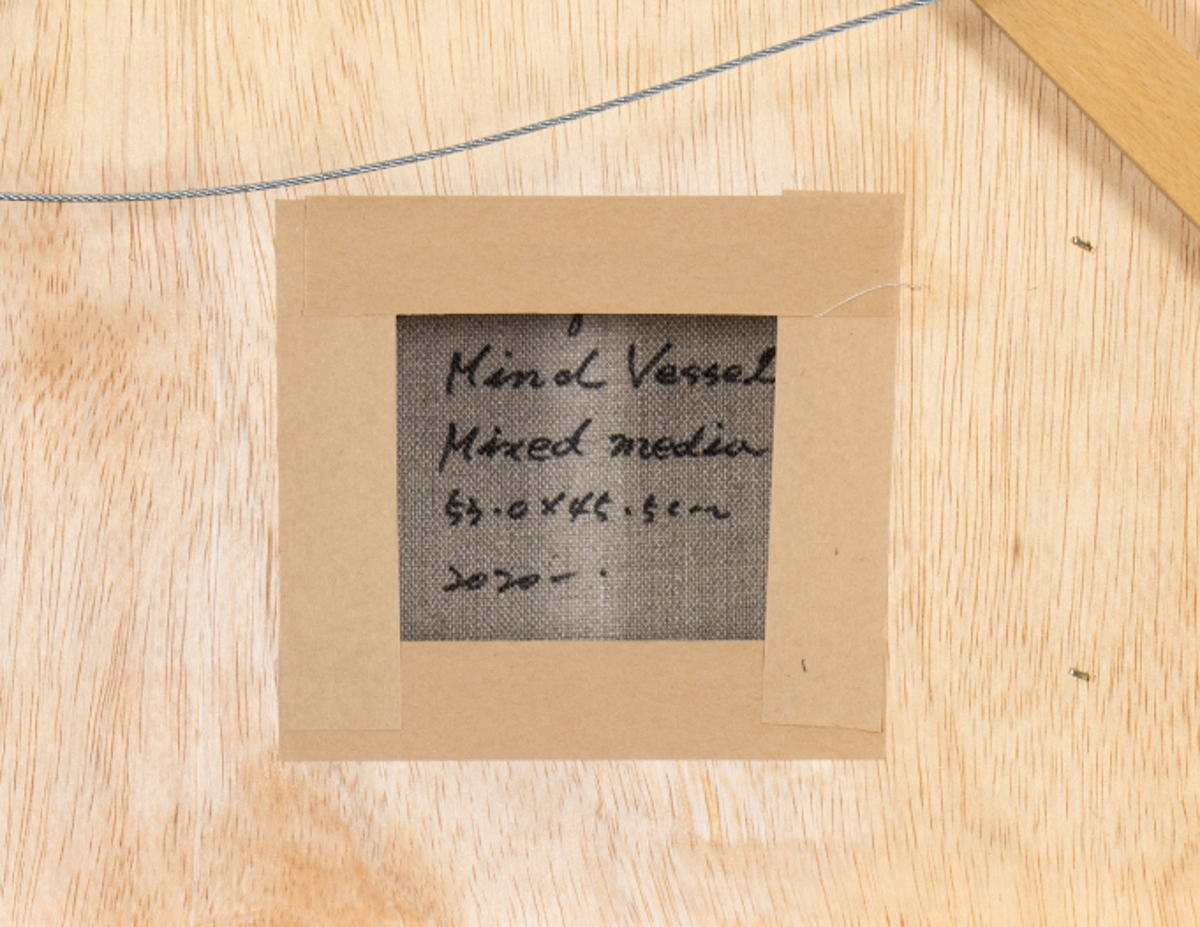 Mind Vessel
Mixed media
53.0×45.5cm
2020-.